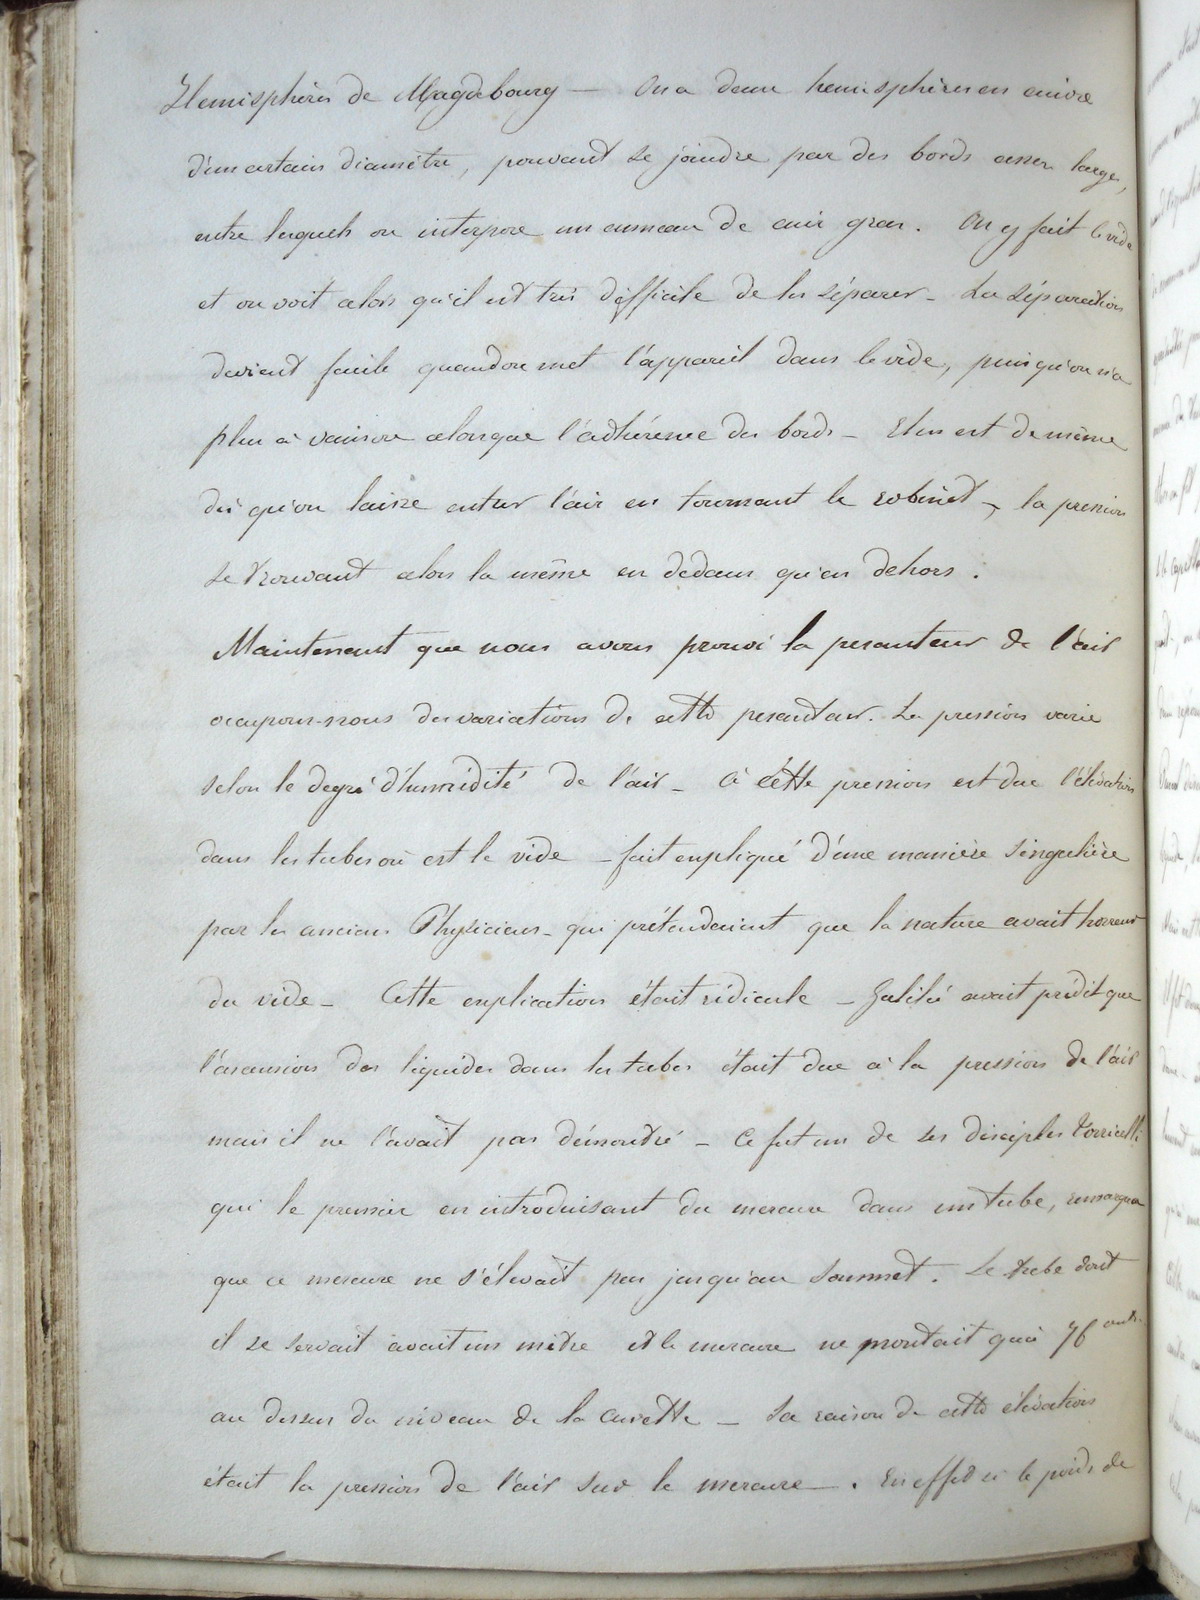 Hemisphères de Magdebourg — On a deux hemisphères en cuivre
d'un certain diamètre, pouvant se joindre par des bords assez larges,
entre lesquels on interpose un anneau de cuir gras. On y fait le vide
et on voit alors qu'il est très difficile de les séparer – La séparation
devient facile quand on met l'appareil dans le vide, puisqu'on n'a
plus à vaincre alors que l'adhérence des bords – Il en est de même
dès qu'on laisse entrer l'air en tournant le robinet, la pression
se trouvant alors la même en dedans qu'en dehors.
Maintenant que nous avons prouvé la pesanteur de l'air
occupons-nous des variations de cette pesanteur. La pression varie
selon le degré d'humidité de l'air – à cette pression est due l'élévation
dans les tubes où est le vide – fait expliqué d'une manière singulière
par les anciens Physiciens – qui prétendaient que la nature avait horreur
du vide – Cette explication était ridicule – Galilée avait prédit que
l'ascension des liquides dans les tubes était due à la pression de l'air
mais il ne l'avait pas démontré – Ce fut un de ses disciples Torricelli
qui le premier en introduisant du mercure dans un tube, remarqua
que ce mercure ne s'élevait pas jusqu'au sommet. Le tube dont
il se servait avait un mètre et le mercure ne montait qu'à 76 cent.
au dessus du niveau de la cuvette – La raison de cette élévation
était la pression de l'air sur le mercure. En effet si le poids de